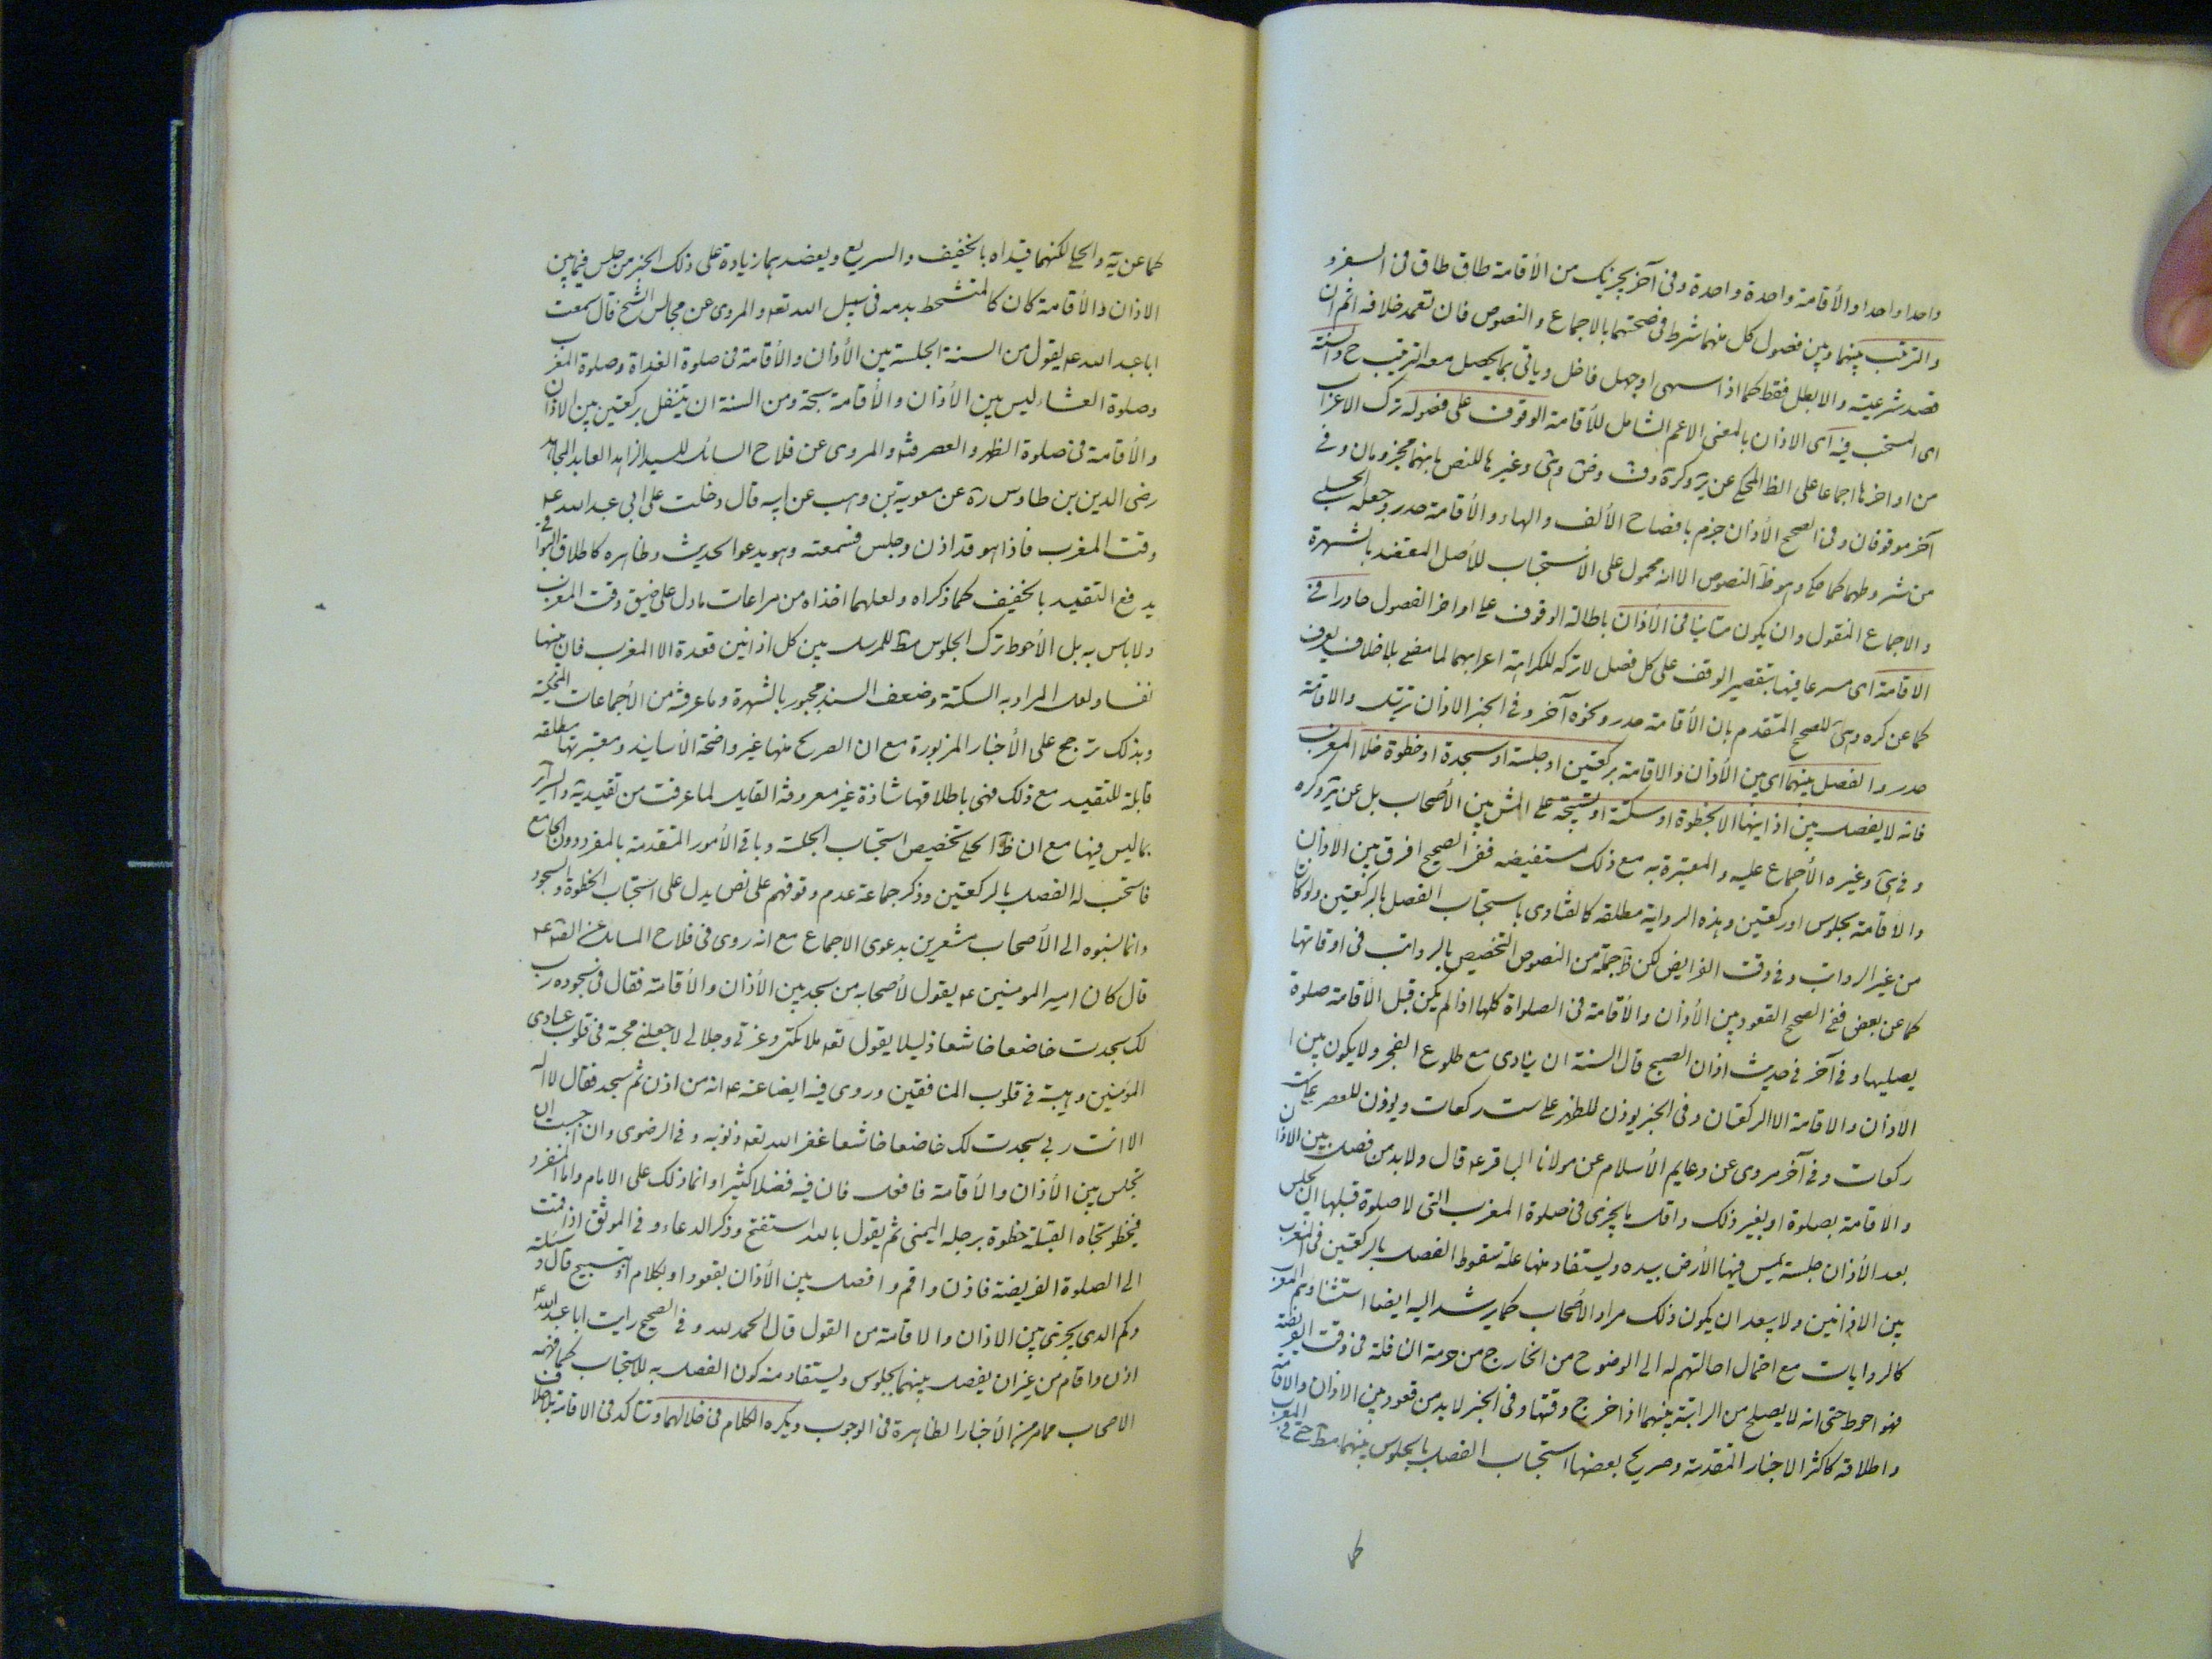 واحدا واحدا والأقامة واحدة واحدة وفى آخر يجزيك من الأقامة طاق طاق فى السفر و
والترتيب بينهما وبين فصول كل منهما شرط فى صحتهما بالاجماع والنصوص فان تعمد خلافه اثم ان
قصد شرعيته والا بطل فقط كما اذا سهى او جهل فاخل وياتى بما يحصل معه الترتيب ح والسنة
اى المستحب فيه اى الاذان بالمعنى الاعم الشامل للأقامة الوقوف على فصوله بترك الاعراب
من اواخرها اجماعا على الظ المحكى عن ية وكرة وغيرها للنص بانهما مجزومان وفى
آخر موقوفان وفى الصحيح الأذان جزم بافصاح الألف والهاء والأقامة حدر وجعله الحلبى
من شروطهما كما حكى وهو ظ النصوص الا انه محمول على الاستحباب للأصل المعتضد بالشهرة
والاجماع المنقول وان يكون متانيا فى الأذان باطالة الوقوف على اواخر الفصول حادرا فى
الاقامة اى مسرعا فيها بتقصير الوقف على كل فصل لا تركه لكراهة اعرابهما لما مضى بلا خلاف يعرف
كما عن كره وهى للصحيح المتقدم بان الأقامة حدر ونحوه آخر وفى الخبر الاذان ترتيل والاقامة
حدر والفصل بينهما اى بين الأذان والاقامة بركعتين او جلسة او سجدة او خطوة خلا المغرب
فانه لا يفصل بين اذانيها الا بخطوة او سكتة او تسبيحة على المش بين الأصحاب بل عن ية وكره
وفى هى وغيره الأجماع عليه والمعتبرة به مع ذلك مستفيضه ففى الصحيح افرق بين الاذان
والاقامة بجلوس او ركعتين وهذه الرواية مطلقه كالفتاوى باستحباب الفصل بالركعتين ولو كان
من غير الرواتب وفى وقت الفرايض لكن ظ جمة من النصوص التخصيص بالرواتب فى اوقاتها
كما عن بعض ففى الصحيح القعود بين الأذان والأقامة فى الصلواة كلها اذا لم يكن قبل الأقامة صلوة
يصليها وفى آخر فى حديث اذان الصبح قال السنة ان ينادى مع طلوع الفجر ولا يكون بين ا
الاذان والاقامة الا الركعتان وفى الخبر يوذن للظهر على ست ركعات ويوذن للعصر على ست
ركعات وفى آخر مروى عن دعايم الأسلام عن مولانا الباقر ع قال ولا بد من فصل بين الاذان
والاقامة بصلوة او بغير ذلك واقل ما يجزى فى صلوة المغرب التى لا صلوة قبلها ان يجلس
بعد الأذان جلسة يمس فيها الأرض بيده ويستفاد منها علة سقوط الفصل بالركعتين فى المغرب
بين الاذانين ولا يبعد ان يكون ذلك مراد الأصحاب كما يرشد اليه ايضا استثناؤهم المغرب
كالروايات مع احتمال احالتهم له الى الوضوح من الخارج من حرمة النافلة فى وقت الفريضة
فهو احوط حتى انه لا يصلح من الراتبة بينهما اذا خرج وقتها وفى الخبر لا بد من قعود بين الاذان والاقامة
واطلاقه كاكثر الاخبار المتقدمة وصريح بعضها استحباب الفصل بالجلوس بينهما مط حتى فى المغرب
كما
كما عن ية والحلى لكنهما قيداه بالخفيف والسريع ويعضدهما زيادة على ذلك الخبر من جلس فيما بين
الاذان والأقامة كان كالمتشحط بدمه فى سبيل الله تعه والمروى عن مجالس الشيخ قال سمعت
ابا عبد الله ع يقول من السنة الجلسة بين الأذان والأقامة فى صلوة الغداة وصلوة المغرب
وصلوة العشاء ليس بين الأذان والأقامة سبحة ومن السنة ان يتنفل بركعتين بين الاذان
والأقامة فى صلوة الظهر والعصر والمروى عن فلاح السائل للسيد الزاهد العابد المجاهد
رضى الدين بن طاوس ره عن معوية بن وهب عن ابيه قال دخلت على ابى عبد الله ع
وقت المغرب فاذا هو قد اذن وجلس فسمعته وهو يدعو الحديث وظاهره كاطلاق البواقى
يدفع التقييد بالخفيف كما ذكراه ولعلهما اخذاه من مراعات ما دل على ضيق وقت المغرب
ولا باس به بل الأحوط ترك الجلوس مط للمرسل بين كل اذانين قعدة الا المغرب فان بينها
نفسا ولعل المراد به السكتة وضعف السند مجبور بالشهرة وما عرفته من الأجماعات المحكية
وبذلك ترجح على الأخبار المزبورة مع ان الصريح منها غير واضحة الأسانيد ومعتبرتها مطلقه
قابلة للتقييد مع ذلك فهى باطلاقها شاذة غير معروفة القايل لما عرفت من تقييد ية والسرآير
بما ليس فيها مع ان ظ الحلى تخصيص استحباب الجلسة وباقى الأمور المتقدمة بالمفرد دون الجامع
فاستحب له الفصل بالركعتين وذكر جماعة عدم وقوفهم على نص يدل على استحباب الخطوة والسجود
وانما نسبوه الى الأصحاب مشعرين بدعوى الاجماع مع انه روى فى فلاح السايل عن الصادق ع
قال كان امير المومنين ع يقول لأصحابه من سجد بين الأذان والأقامة فقال فى سجوده رب
لك سجدت خاضعا خاشعا ذليلا يقول تعه ملائكتى وعزتى وجلالى لاجعلن محبته فى قلوب عبادى
المؤمنين وهيبته فى قلوب المنافقين وروى فيه ايضا عنه ع انه من اذن ثم سجد فقال لا اله
الا انت ربى سجدت لك خاضعا خاشعا غفر الله تعه ذنوبه وفى الرضوى وان احببت ان
تجلس بين الأذان والأقامة فافعل فان فيه فضلا كثيرا وانما ذلك على الامام واما المنفرد
فيخطو تجاه القبلة خطوة برجله اليمنى ثم يقول بالله استفتح وذكر الدعاء وفى الموثق اذا قمت
الى الصلوة الفريضة فاذن واقم وافصل بين الأذان بقعود او بكلام او تسبيح قال وسئلته
وكم الذى يجزى بين الاذان والاقامة من القول قال الحمد لله وفى الصحيح رايت ابا عبد الله ع
اذن واقام من غير ان يفصل بينهما بجلوس ويستفاد منه كون الفصل به للاستحباب كما فهمه
الاصحاب مما مر من الأخبار الظاهرة فى الوجوب ويكره الكلام فى خلالهما وتتاكد فى الاقامة بلا خلاف